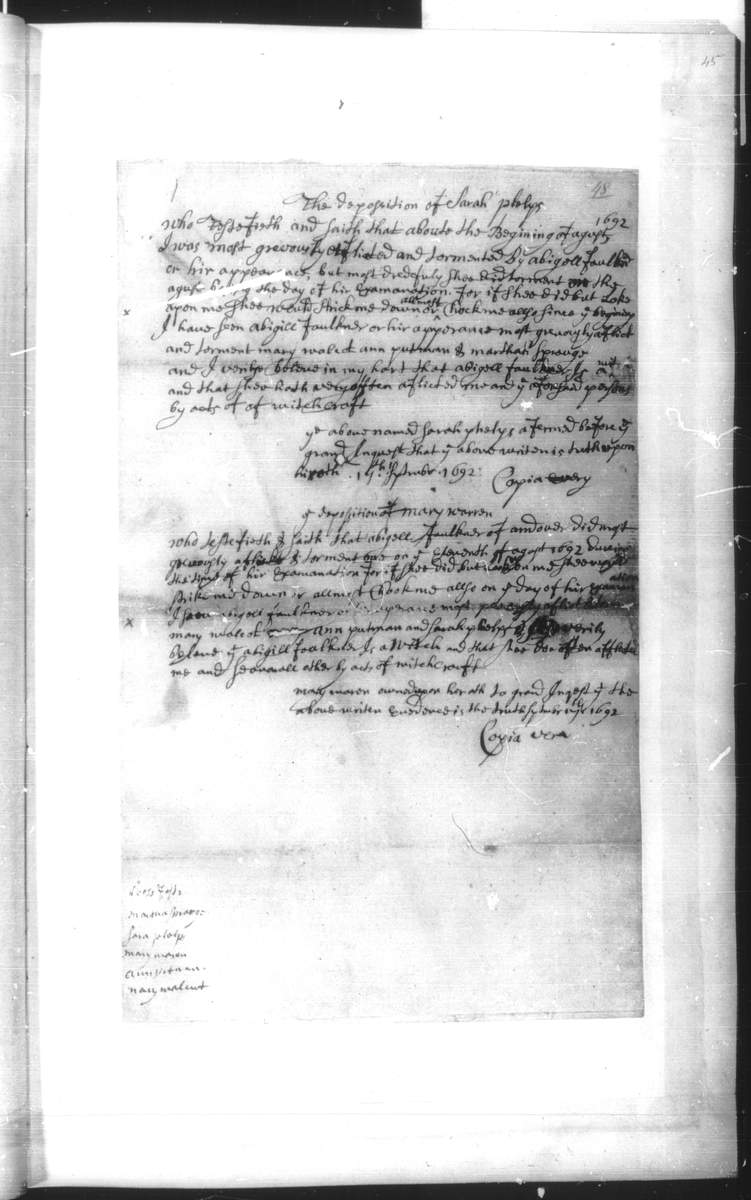 45
48
The deposition of Sarah phelps
who Testefieth and saith that aboute the Begining of agust 1692
I was most grevously aflicted and tormented by abigell Faulkner
or hir appearance, but most dredfuly shee did torment me the
agust being the day of hir Examanation. For if shee did but Loke
apon me shee would strick me down or allmost Chock me allso since ye begining
I have seen abigill Faulkner or hir apperance most grevously aflict
and torment mary walcot ann putman & marthah sprauge
and I verily beleve in my hart that abigell faulkner Is a wit
and that shee hath very often aflicted me and ye aforsaid persons
by acts of of witchcraft
ye above named Sarah phelps afermed before ye
grand Inquest that ye above writen is truth upon
hir oth Septmbr 1692
Copia very
ye deposition of mary warren
who testefieth & saith that abigell Faulkner of andover did most
grevously & torment me on ye eleventh of agust 1692 dureing
the time of hir Examanation for if shee did but look on me shee would
strike me down or allmost Chook me allso on ye day of hir Examanation
I seen abigell faulkner or most aflict
mary walcot ann putman and sarah phelps verily
beleve yt abigill faulkner Is a Witch and that shee has often afflicted
me and severall other by acts of witchcraft
mary waren owned upon hor oth to grand Inqest yt the
above writen Evedence is the truth 1692
Copia vera
martha sprage
sara phelps
mary waren
ann putnan
mary walcut